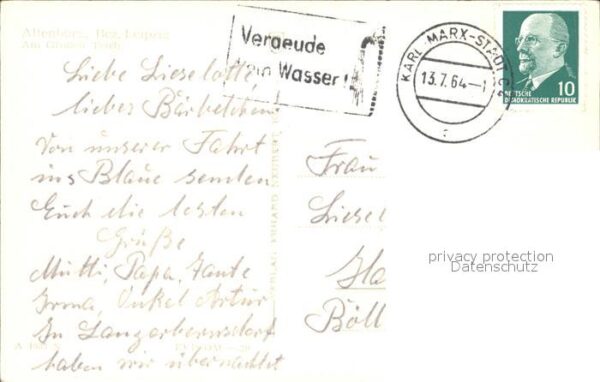 Altenburg, Bez. Leipzig
Am Großen Teich
Vergeude
kein Wasser!
KARL-MARX-STADT C2
13.7.64-1
r
10
DEUTSCHE
DEMOKRATISCHE REPUBLIK
Liebe Lieselotte,
liebes Bärbelchen
Von unserer Fahrt
ins Blaue senden
Euch die besten
Grüße
Mutti, Papa, Tante
Irma, Onkel Artur
In Langenbernsdorf
haben wir übernachtet
VERLAG ERHARD NEUBERT
Frau
Liesel
Ha
Böll
privacy protection
Datenschutz